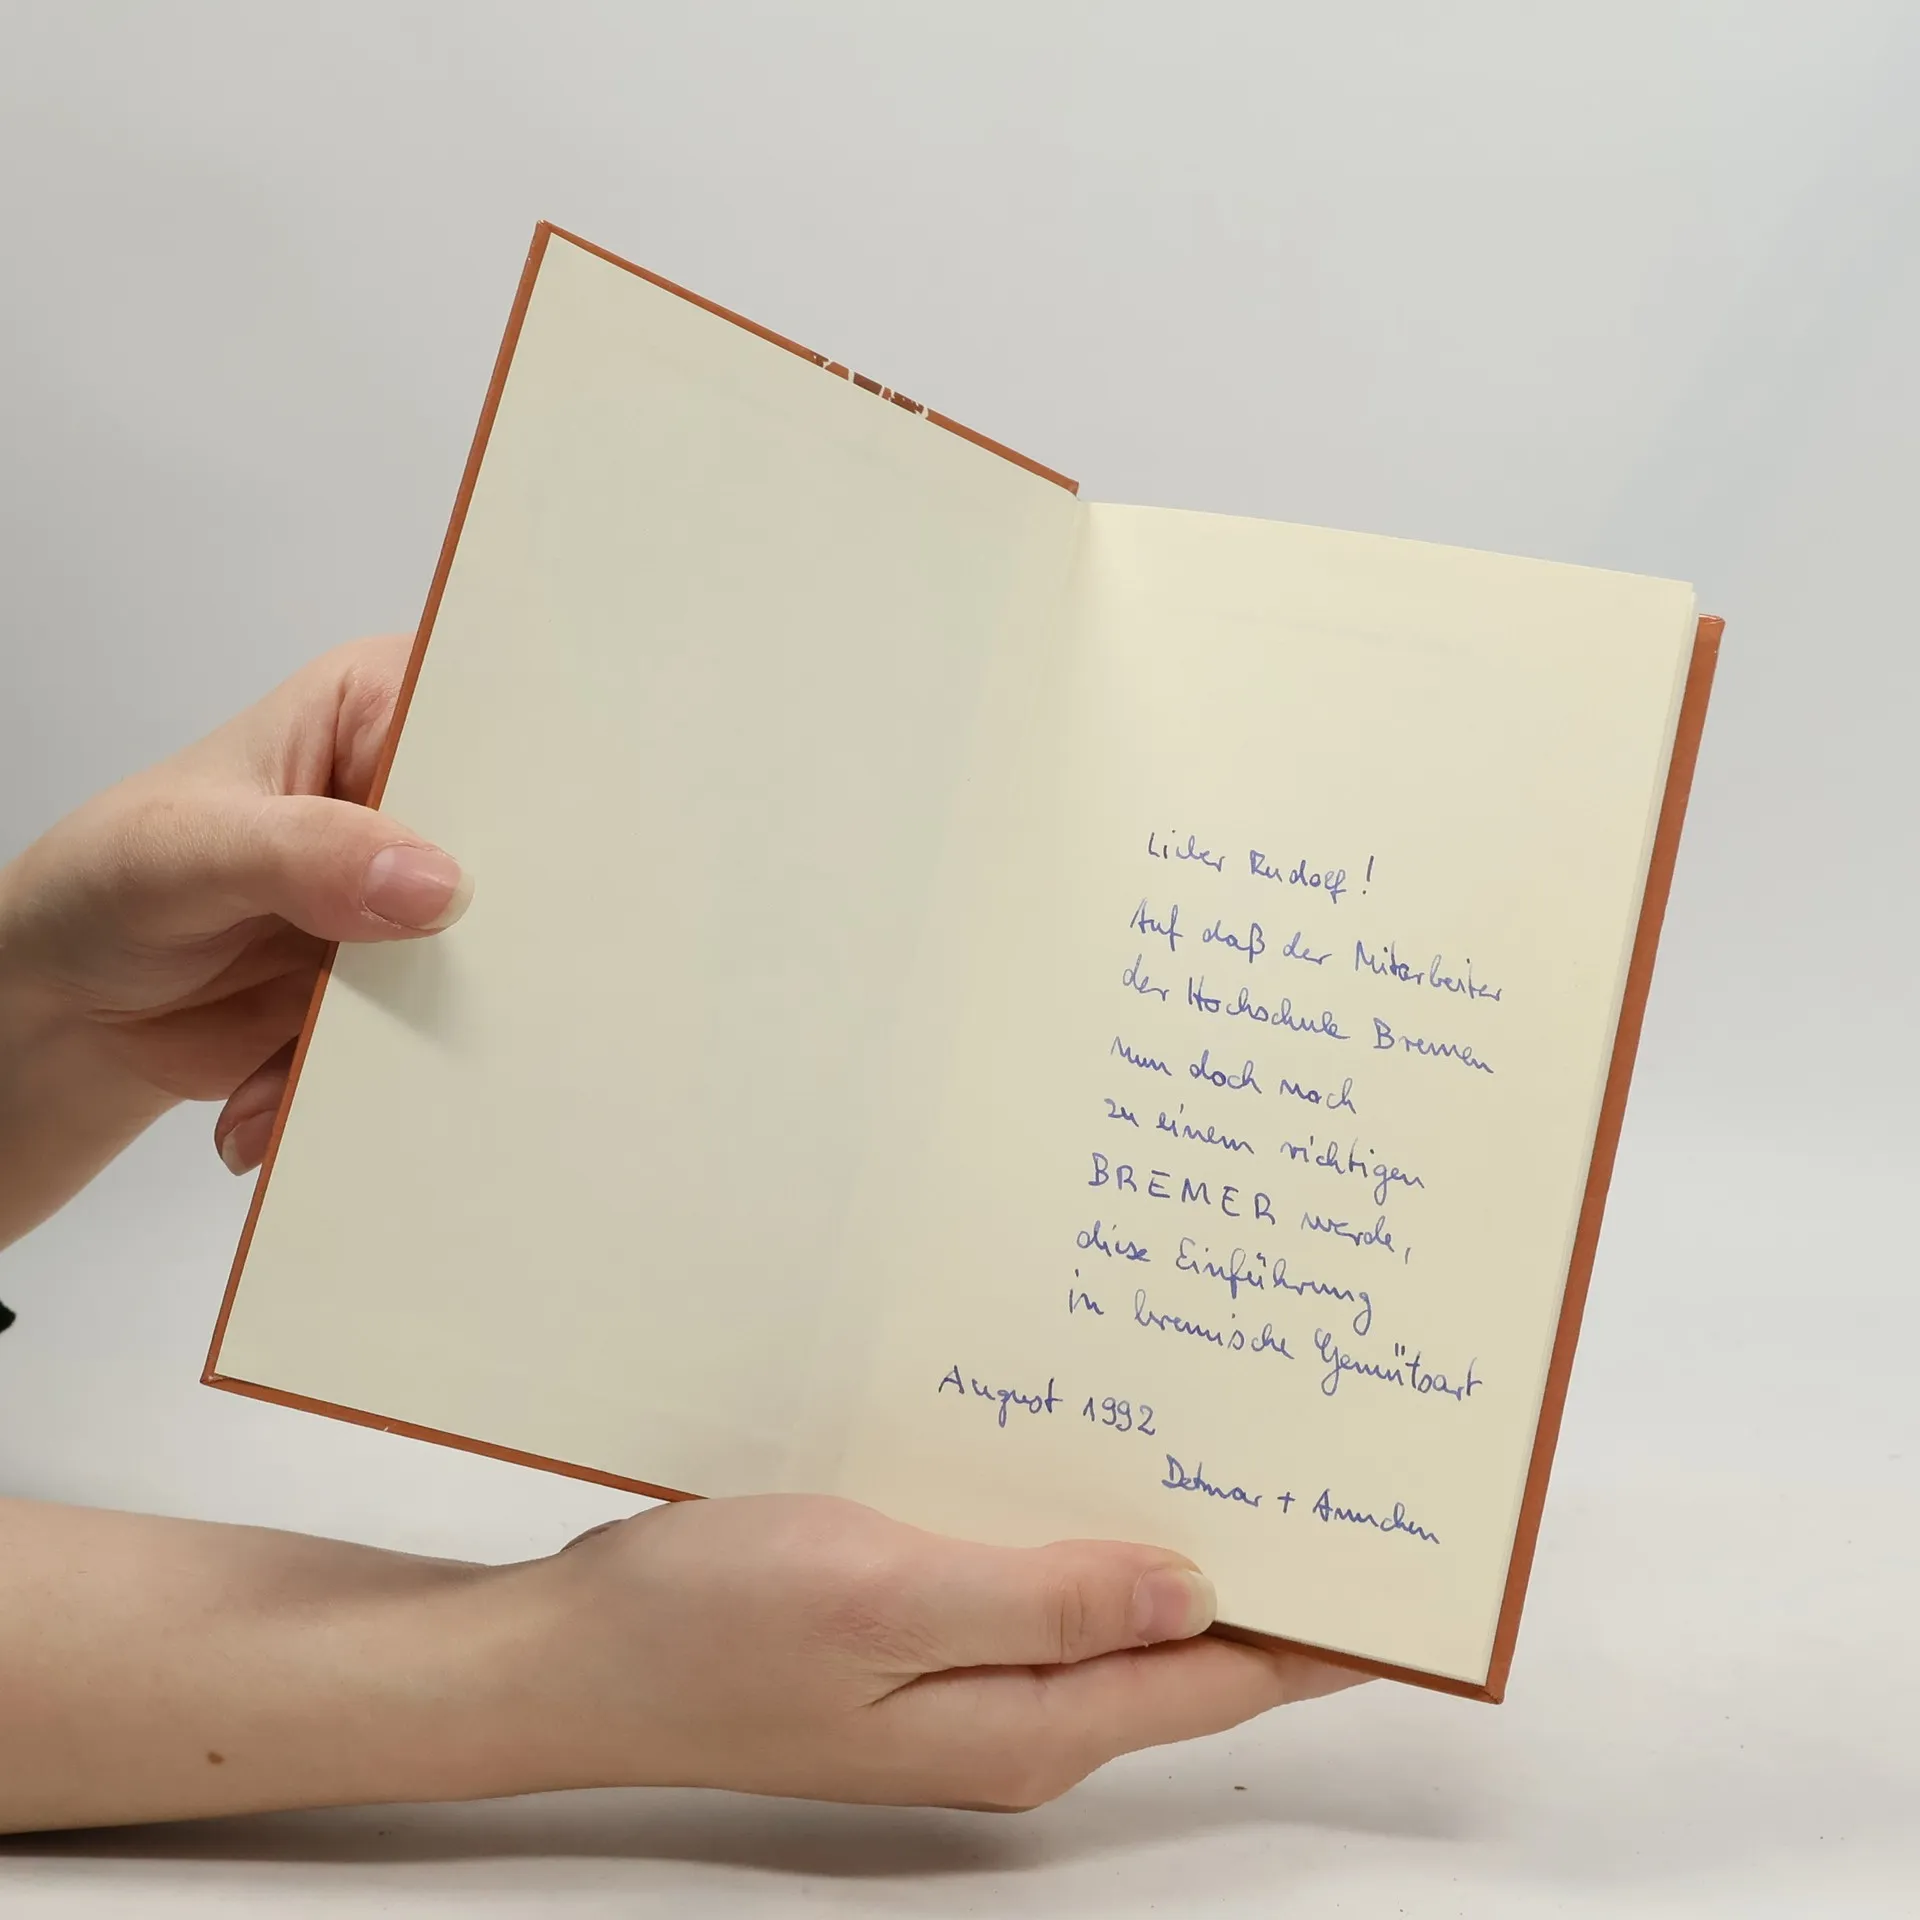 Lieber Rudolf!
Auf daß der Mitarbeiter
der Hochschule Bremen
nun doch noch
zu einem richtigen
BREMER werde,
diese Einführung
in bremische Gemütsart
August 1992
Detmar + Annchen